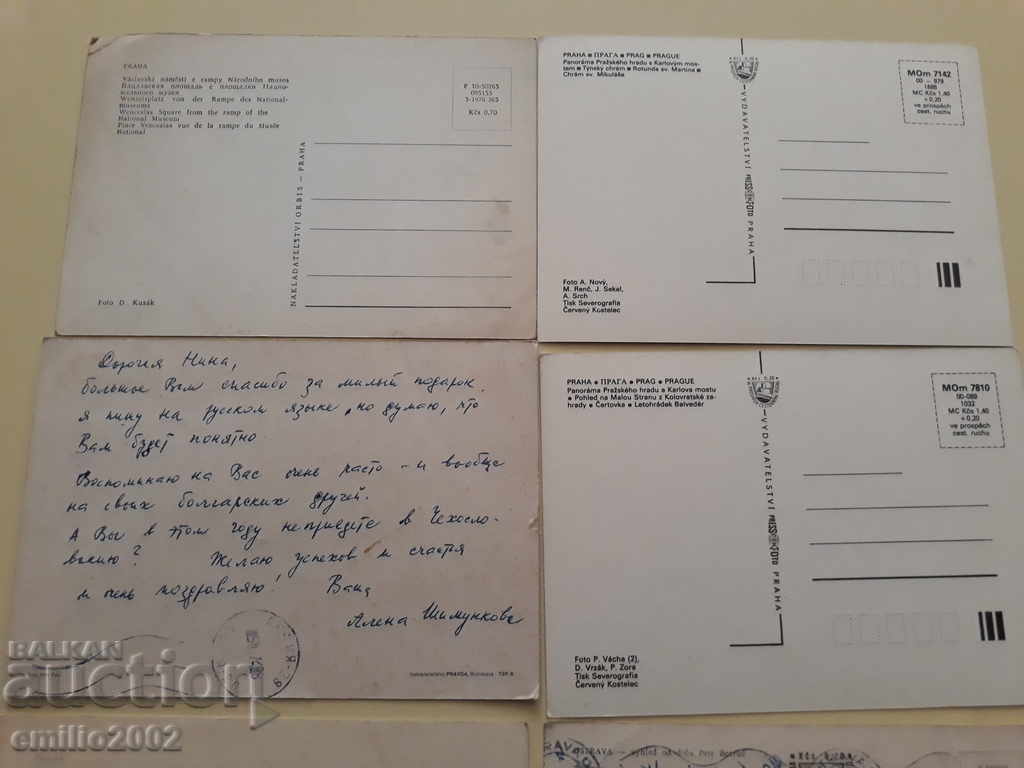 PRAHA
Václavské náměstí z rampy Národního musea
Вацлавская площадь с площадки Нацио-
нального музея
Wenzelsplatz von der Rampe des National-
museums
Wenceslas Square from the ramp of the
National Museum
Place Venceslas vue de la rampe du Musée
National
095155
Kčs 0,70
NAKLADATELSTVÍ ORBIS — PRAHA
Foto D. Kusák
PRAHA ■ ПРАГА ■ PRAG ■ PRAGUE
Panoráma Pražského hradu s Karlovým mos-
tem ■ Týnský chrám ■ Rotunda sv. Martina ■
Chrám sv. Mikuláše
MOm 7142
00 - 979
1685
MC Kčs 1,40
+ 0,20
ve prospěch
cest. ruchu
VYDAVATELSTVÍ PRESSFOTO PRAHA
Foto A. Nový,
M. Renč, J. Sekal,
A. Srch
Tisk Severografia
Červený Kostelec
Дорогая Нина,
большое Вам спасибо за милый подарок.
Я пишу на русском языке, но думаю, что
Вам будет понятно.
Воспоминаю на Вас очень часто – и вообще
на своих болгарских друзей.
А Вы в этом году неприедете в Чехосло-
вакию? Желаю успехов и счастя
и очень поздравляю! Ваша
Алена Шимункова
PRAVDA, Bratislava
PRAHA ■ ПРАГА ■ PRAG ■ PRAGUE
Panoráma Pražského hradu a Karlova mostu
■ Pohled na Malou Stranu z Kolovratské za-
hrady ■ Čertovka ■ Letohrádek Belvedér
MOm 7810
00-089
1033
MC Kčs 1,40
+ 0,20
ve prospěch
cest. ruchu
VYDAVATELSTVÍ PRESSFOTO PRAHA
Foto P. Vácha (2),
D. Vrsák, P. Zora
Tisk Severografia
Červený Kostelec
BALKAN
auction
emilio2002